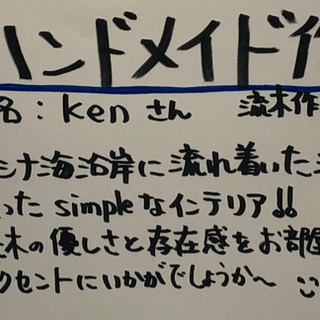 ハンドメイド作
名：kenさん 流木作
シナ海沿岸に流れ着いた
ったsimpleなインテリア!!
木の優しさと存在感をお部屋
クセントにいかがでしょうか〜